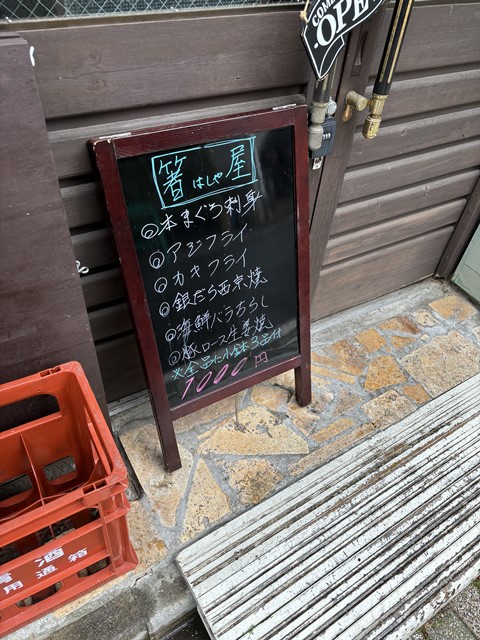 COME
OPEN
箸 はしや 屋
◎本まぐろ刺身
◎アジフライ
◎カキフライ
◎銀だら西京焼
◎海鮮バラちらし
◎豚ロース生姜焼
※全品に小鉢3品付
1000円
酒
用通箱